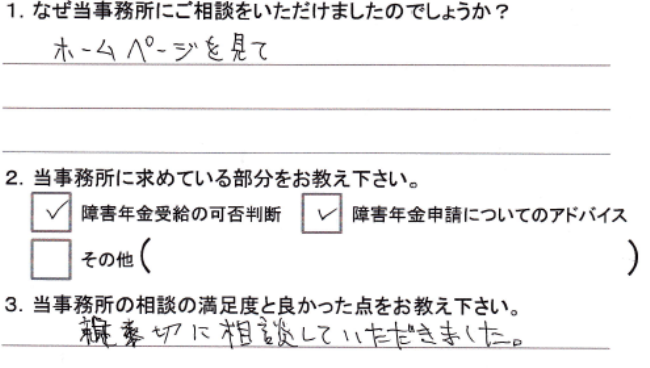 1. なぜ当事務所にご相談をいただけましたのでしょうか？
ホームページを見て
2. 当事務所に求めている部分をお教え下さい。
障害年金受給の可否判断 障害年金申請についてのアドバイス
その他( )
3. 当事務所の相談の満足度と良かった点をお教え下さい。
切に相談していただきました。